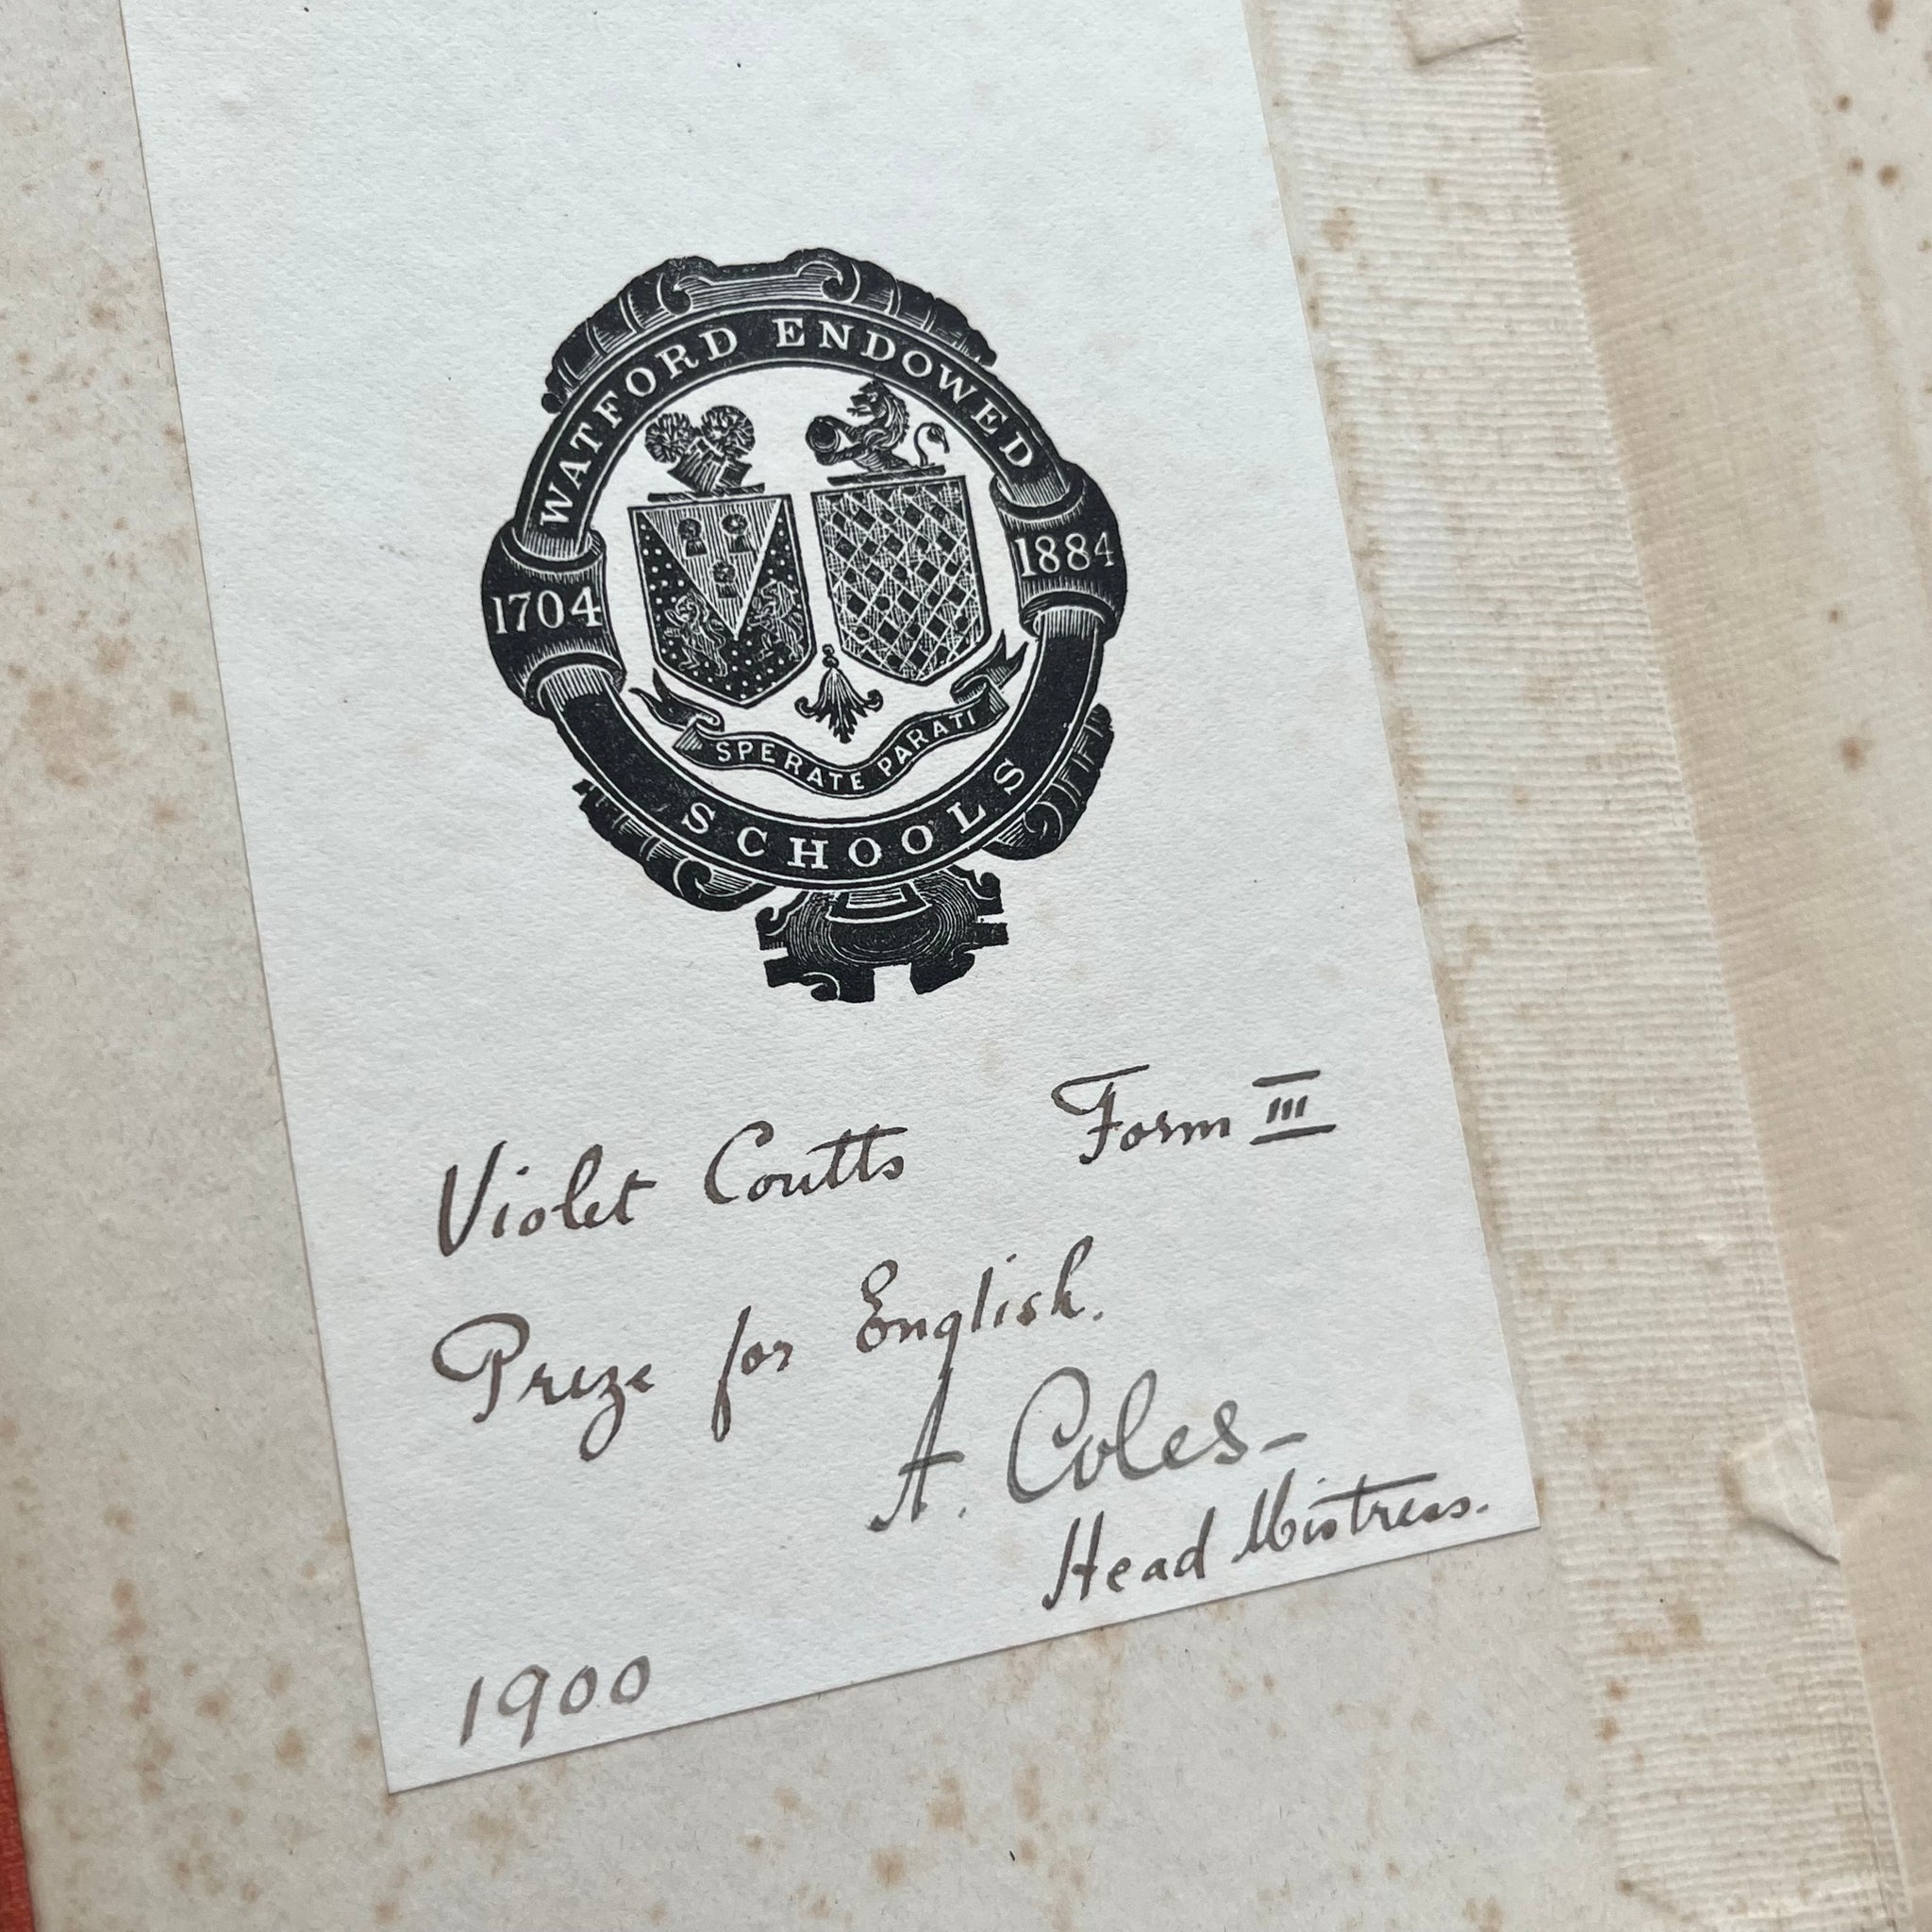 WATFORD ENDOWED
1704
1884
SPERATE PARATI
SCHOOLS
Violet Coutts Form III
Prize for English.
A. Coles—
Head Mistress.
1900